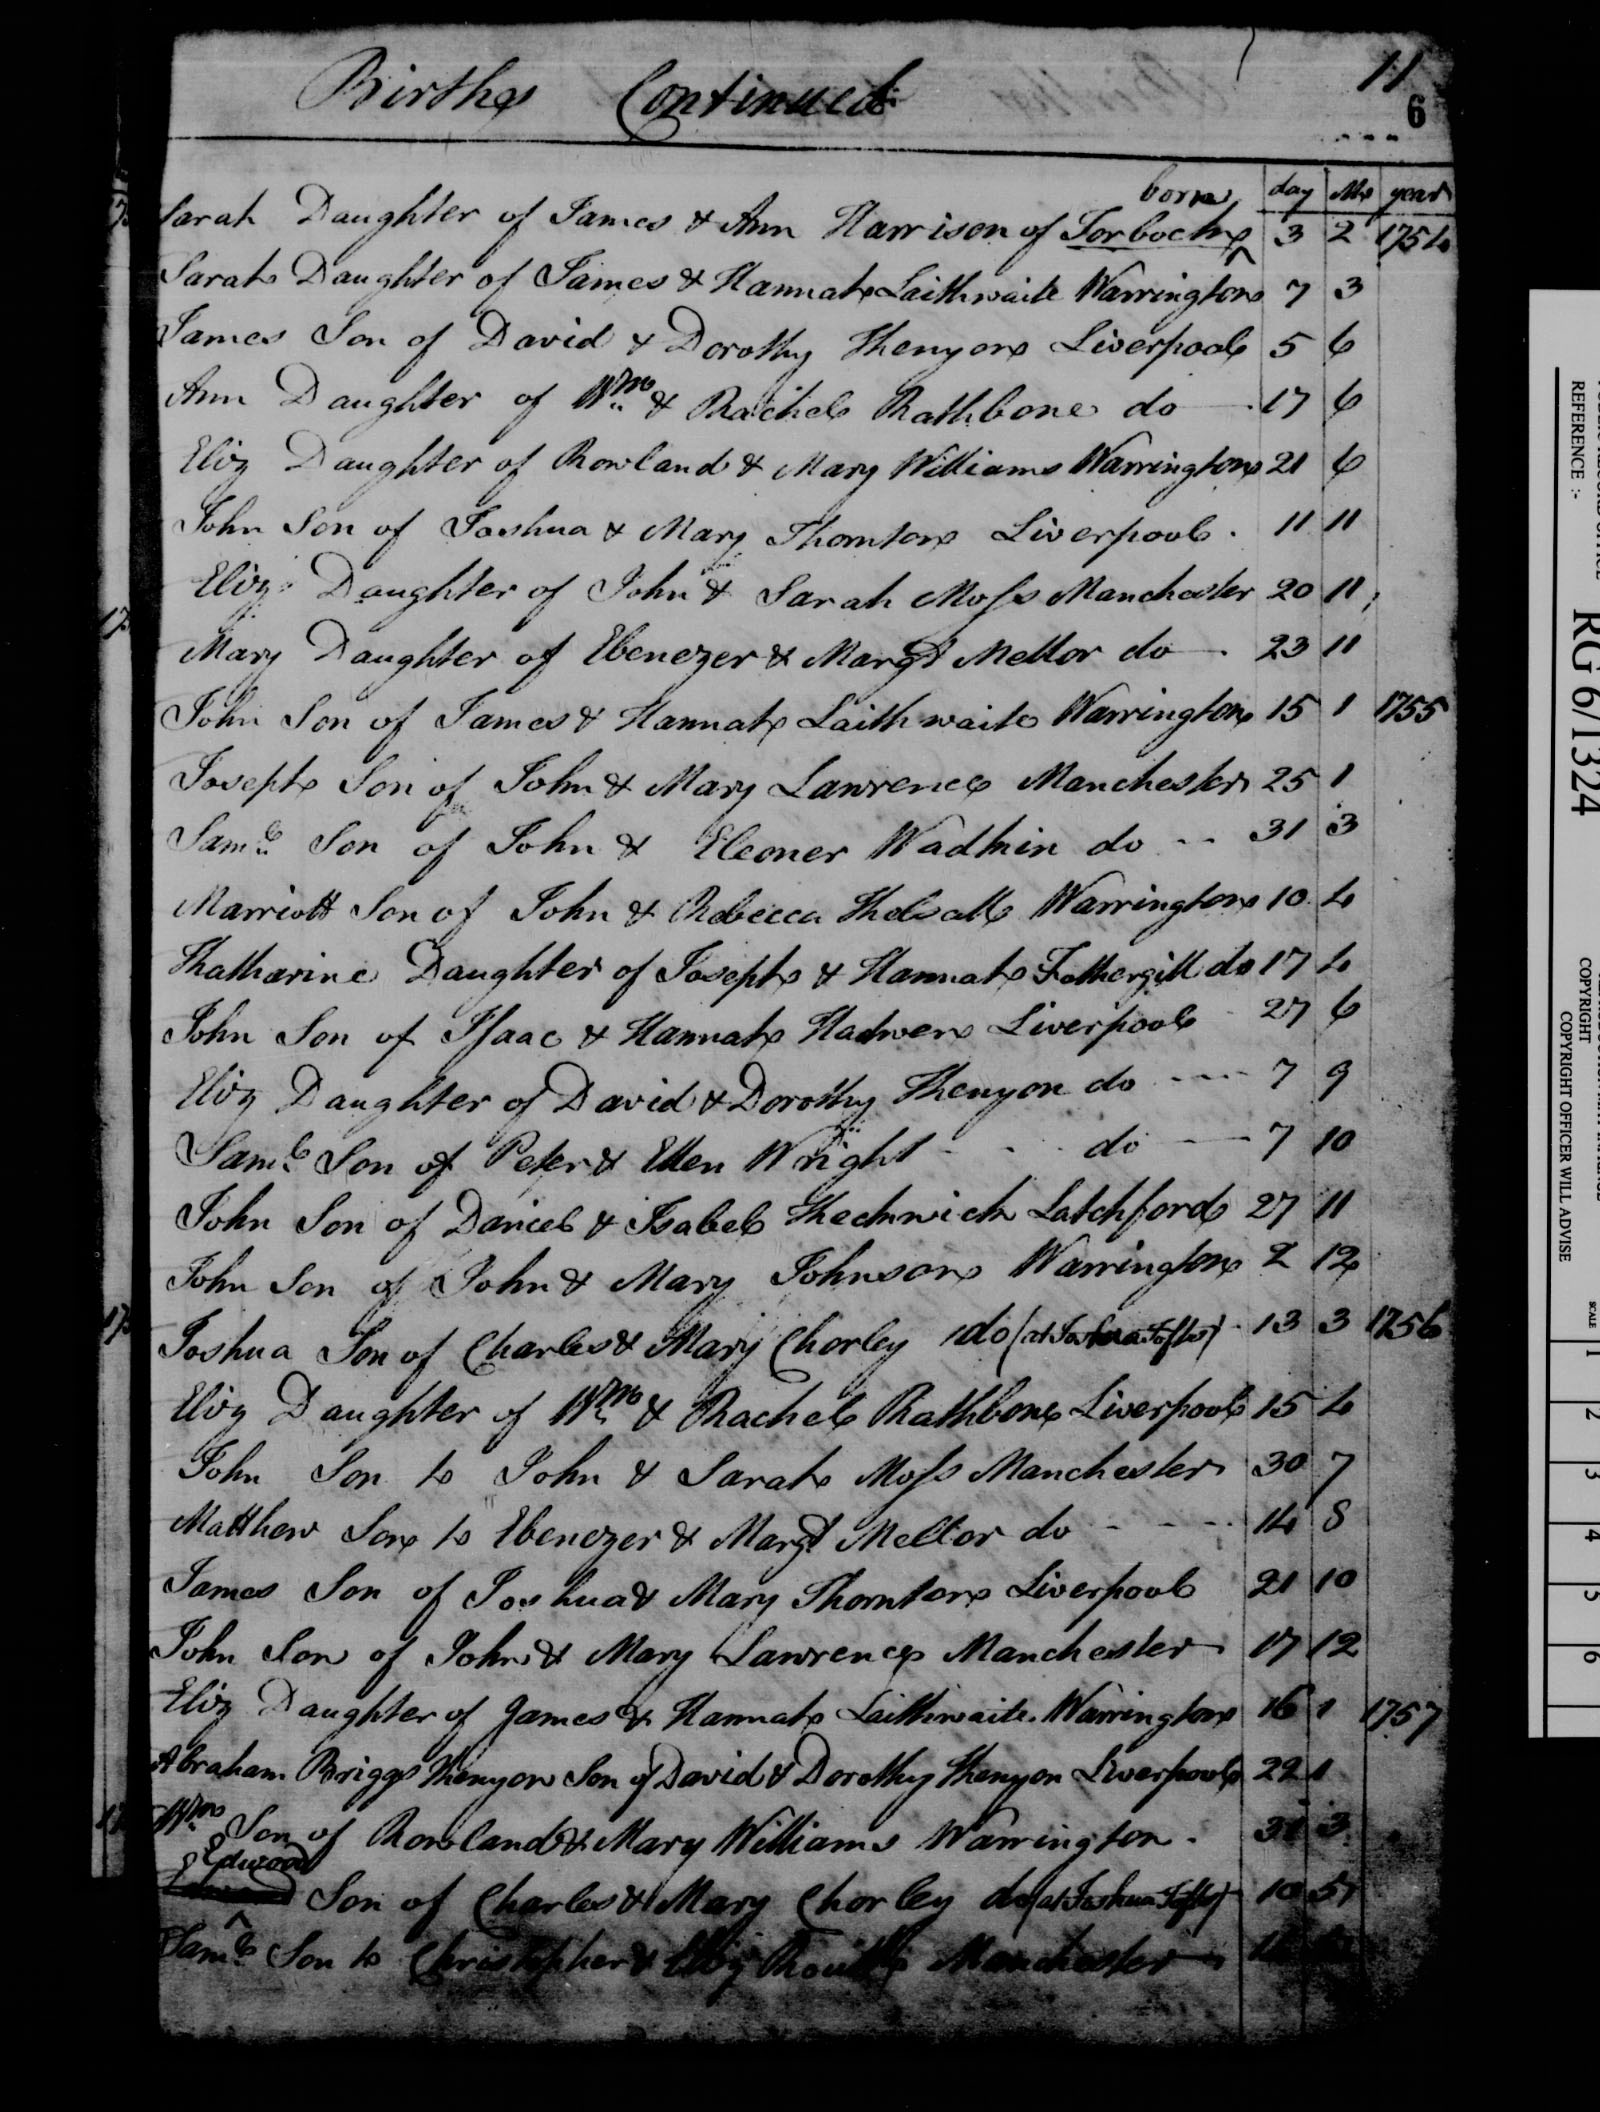 11
6
Births Continued
born day Mo year
Sarah Daughter of James & Ann Harrison of Torboch ^ 3 2 1754
Sarah Daughter of James & Hannah Laithwaite Warrington 7 3
James Son of David & Dorothy Kenyon Liverpool 5 6
Ann Daughter of Wm & Rachel Rathbone do 17 6
Eliz Daughter of Rowland & Mary Williams Warrington 21 6
John Son of Joshua & Mary Thornton Liverpool 11 11
Eliz Daughter of John & Sarah Moss Manchester 20 11
Mary Daughter of Ebenezer & Margt Mellor do 23 11
John Son of James & Hannah Laithwaite Warrington 15 1 1755
Joseph Son of John & Mary Lawrence Manchester 25 1
Saml Son of John & Eleoner Wadkin do 31 3
Marriott Son of John & Rebecca Kelsall Warrington 10 4
Katharine Daughter of Joseph & Hannah Fothergill do 17 4
John Son of Isaac & Hannah Hadwen Liverpool 27 6
Eliz Daughter of David & Dorothy Kenyon do 7 9
Saml Son of Peter & Ellen Wright do 7 10
John Son of Daniel & Isabel Keckwick Latchford 27 11
John Son of John & Mary Johnson Warrington 2 12
Joshua Son of Charles & Mary Chorley do (at Joshua Tofts) 13 3 1756
Eliz Daughter of Wm & Rachel Rathbone Liverpool 15 4
John Son to John & Sarah Moss Manchester 30 7
Matthew Son to Ebenezer & Margt Mellor do 14 8
James Son of Joshua & Mary Thornton Liverpool 21 10
John Son of John & Mary Lawrence Manchester 17 12
Eliz Daughter of James & Hannah Laithwaite Warrington 16 1 1757
Abraham Briggs Kenyon Son of David & Dorothy Kenyon Liverpool 22 1
Wm Son of Rowland & Mary Williams Warrington 31 3
Edward
Son of Charles & Mary Chorley do (at Joshua Tofts) 10 5
Saml Son to Christopher & Eliz Manchester
REFERENCE :-
RG 6/1324
COPYRIGHT
COPYRIGHT OFFICER WILL ADVISE
SCALE 1 2 3 4 5 6